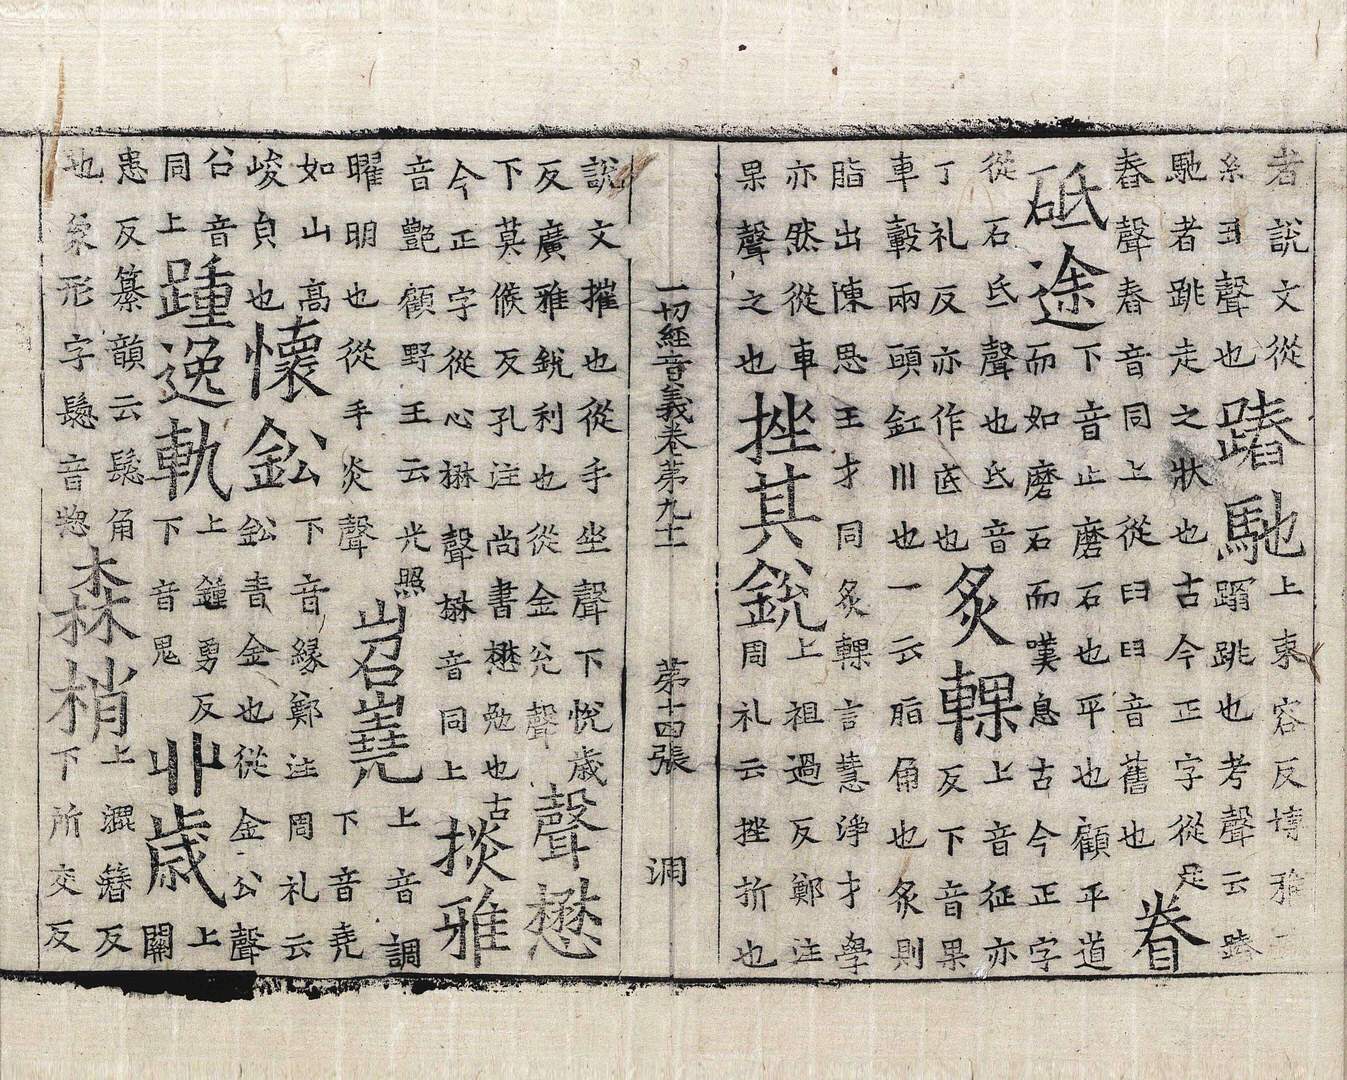 者說文從
糸玉聲也
踳馳
上束容反博雅一
蹹跳也考聲云踳
馳者跳走之狀也古今正字從足
舂聲舂音同上從臼臼音舊也
眷
砥途
下音止磨石也平也顧平道
而如磨石而嘆息古今正字
從石氐聲也氐音
丁礼反亦作底也
炙輠
上音征亦
反下音果
車轂兩頭釭川也一云脂角也炙則
脂出陳思王才同炙輠言慧淨才學
亦然從車
果聲之也
挫其銳
上祖過反鄭注
周礼云挫折也
一切經音義卷第九十一 第十四張 洞
說文摧也從手坐聲下悅歲
反廣雅銳利也從金兊聲
聲懋
下莫候反孔注尚書懋勉也古
今正字從心楙聲楙音同上
掞雅
音艷顧野王云光照
曜明也從手炎聲
岧嶤
上音調
下音堯
如山高
峻皃也
懷鈆
下音縁鄭注周礼云
鈆青金也從金㕣聲
㕣音
同上
踵逸軌
上鍾勇反
下音鬼
丱歲
上
關
患反纂韻云鬉角
也象形字鬉音惣
森梢
上澀簪反
下所交反